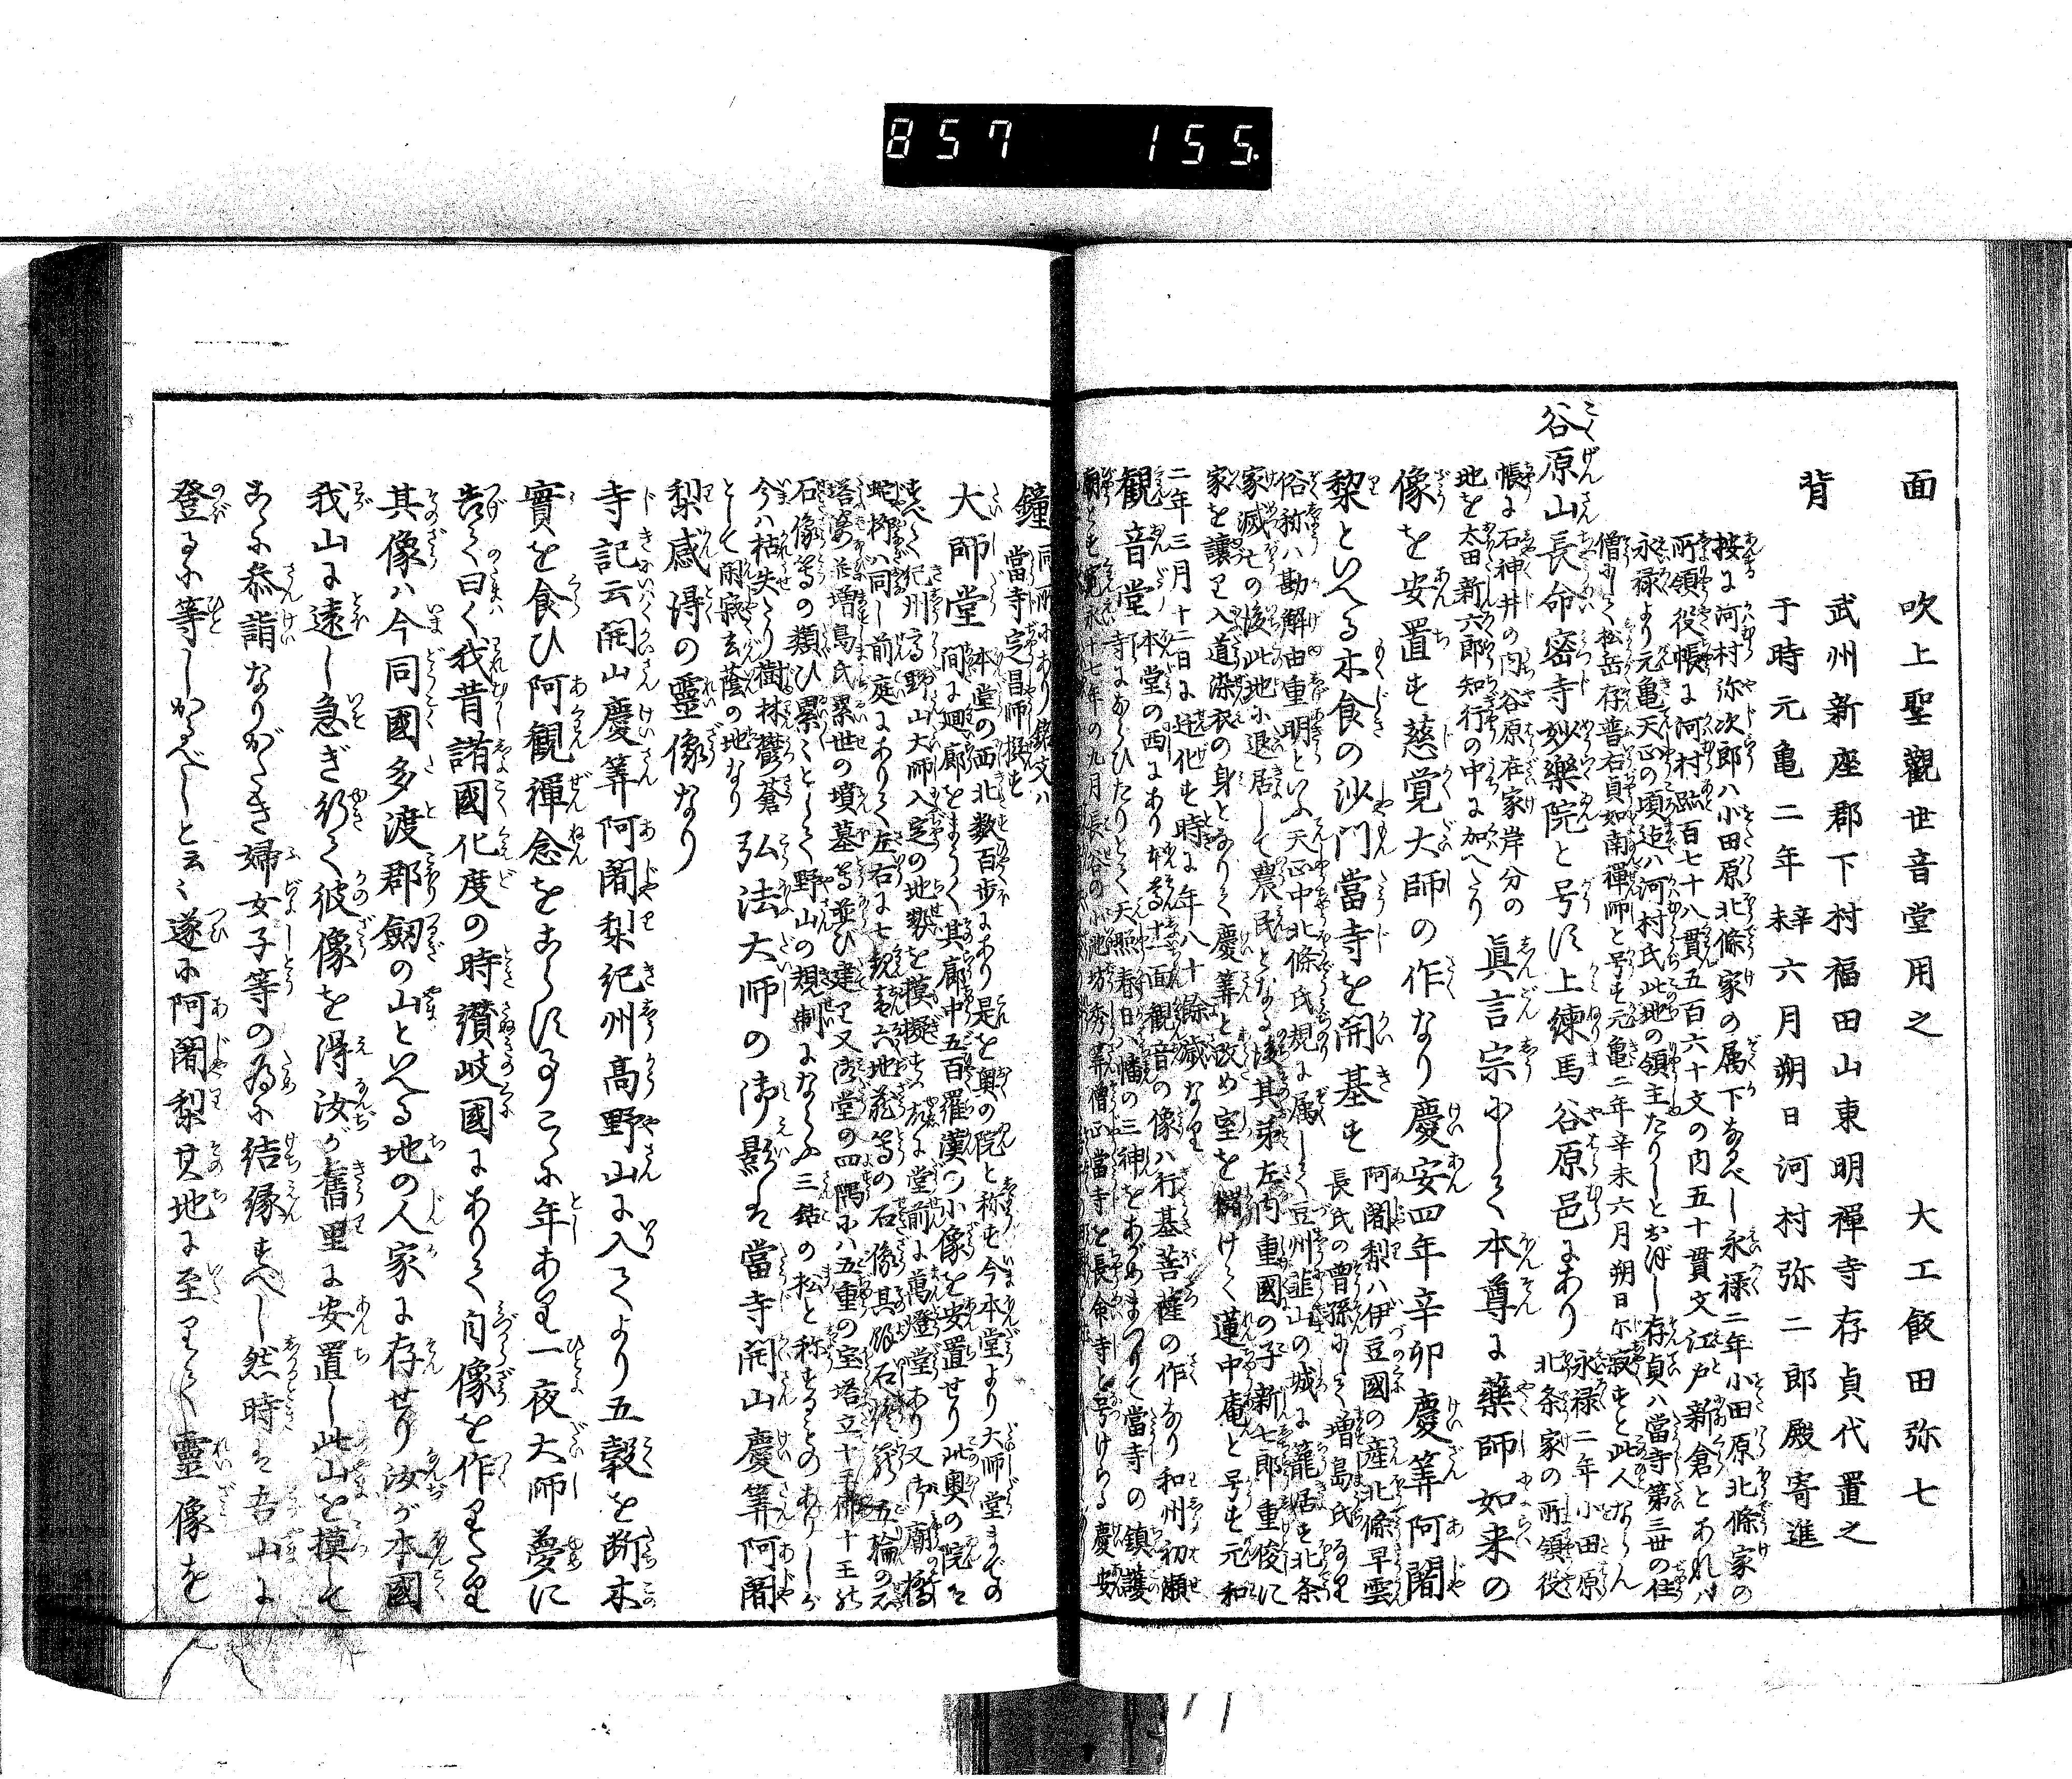 857 155.
面 吹上聖觀世音堂用之 大工飯田弥七
背 武州新座郡下村福田山東明禪寺存貞代置之
于時元亀二年辛未六月朔日河村弥二郎殿寄進
按に河村弥次郎ハ小田原北條家の属下なるべし永禄二年小田原北條家の
所領役帳に河村跡百七十八貫五百六十文の内五十貫文江戸新倉とあれハ
永禄より元亀天正の頃迄ハ河村氏此地の領主たりしとおぼし存貞ハ當寺第三世の住
僧にして松岳存普右貞如南禪師と号す元亀二年辛未六月朔日示寂すと此人ならん
谷原山長命密寺妙樂院と号す上練馬谷原邑にあり 永禄二年小田原北条家の所領役
帳に石神井の内谷原在家岸分の
地を太田新六郎知行の中に加へたり
眞言宗にして本尊に藥師如来の
像を安置す慈覚大師の作なり慶安四年辛卯慶筭阿闍
黎といへる木食の沙門當寺を開基す 阿闍梨ハ伊豆國の産北條早雲
長氏の曽孫にして増島氏なり
俗称ハ勘解由重明といふ天正中北條氏規に属して豆州韮山の城に籠居す北条
家滅亡の後此地に退居して農民となる後其弟左内重國の子新七郎重俊に
家を讓り入道染衣の身となりて慶筭と改め室を構けて蓮中庵と号す元和
二年三月十二日に迁化す時に年八十餘歳なり
観音堂 本堂の西にあり本尊十一面観音の像ハ行基菩薩の作なり和州初瀬
寺にならひたりとて天照春日八幡の三神をあがめまつりて當寺の鎮護
廟とす寛永十七年の九月長谷の小池坊秀筭僧正當寺を長命寺と号けらる慶安
鐘 同所にあり銘文ハ
當寺定昌師撰す
大師堂 本堂の西北数百歩にあり是を奥の院と称す今本堂より大師堂までの
間に廻廊をまうく其廊中五百羅漢の小像を安置せり此奥の院は
すべて紀州高野山大師入定の地勢を模擬す故に堂前に萬燈堂あり又御廟橋
蛇柳ハ同し前庭にありて左右に七観音六地蔵等の石像其餘石燈籠五輪の石
塔等并増島氏累世の墳墓等並ひ建り又御堂の四隅にハ五重の宝塔立十三佛十王の
石像等の類ひ累々として野山の規制にならふ三鈷の松と称するものありしが
今ハ枯失たり樹林鬱蒼
として閑寂玄蔭の地なり
弘法大師の御影は當寺開山慶筭阿闍
梨感得の靈像なり
寺記云開山慶筭阿闍梨紀州高野山に入てより五穀を断木
實を食ひ阿観禪念をこらすことこゝに年あり一夜大師夢に
告て曰く我昔諸國化度の時讃岐國にありて自像を作りたり
其像ハ今同國多渡郡劔の山といへる地の人家に存せり汝が本國
我山に遠し急ぎ行て彼像を得汝が舊里に安置し此山を摸して
こゝに叅詣なりがたき婦女子等の為に結縁すべし然時は吾山に
登るに等しかるべしと云々遂に阿闍梨其地に至りて靈像を